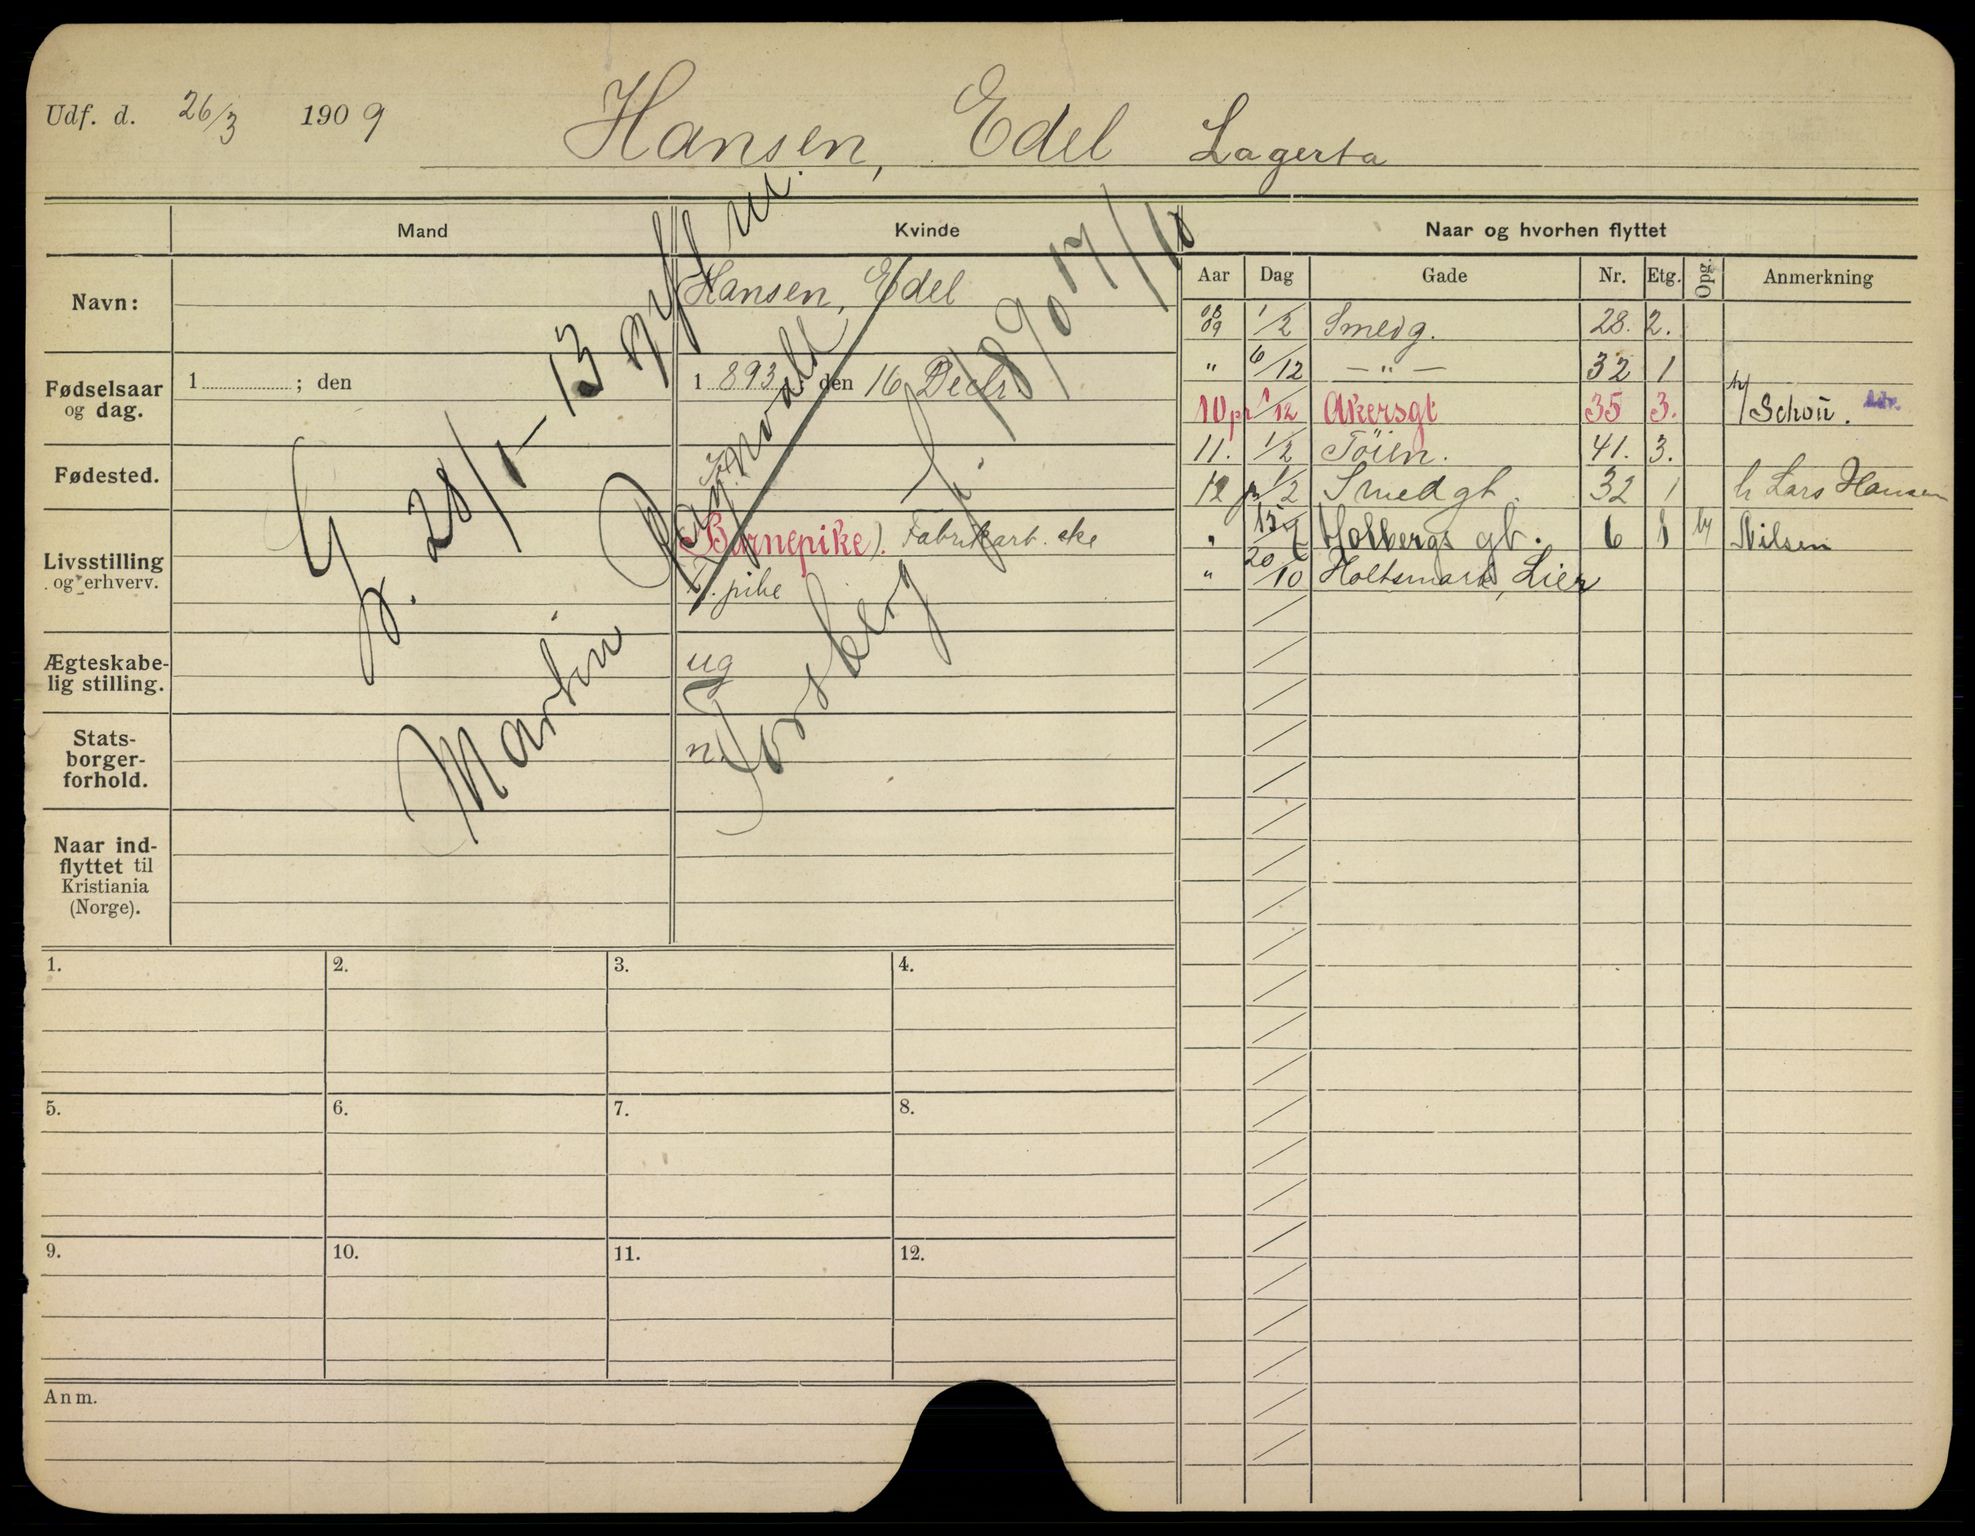 Udf. d. 26/3 1909 Hansen, Edel Lagerta
Mand Kvinde Naar og hvorhen flyttet
Aar Dag Gade Nr. Etg. Opg. Anmerkning
Navn: Hansen, Edel
Fødselsaar og dag. 1 ; den 1 893 ; den 16 Decbr.
Fødested.
Livsstilling og erhverv. (Barnepike). Fabrikarb. ske
pike
Ægteskabelig stilling. ug
Statsborgerforhold. n.
Naar indflyttet til Kristiania (Norge).
G. 28/1-13
Martin Ragnvald
Forsberg f. 1890 17/10
08 09 1/2 Smedg. 28. 2.
" 6/12 — " — 32 1
10 pr 1/12 Akersgt 35 3. h/ Schou.
11. 1/2 Töien. 41. 3.
12 pr 1/2 Smedgt. 32 1 h Lars Hansen
" 15/7 Holbergs gt. 6 1 h/ Nilsen
" 20/10 Holtsmark, Lier
1. 2. 3. 4.
5. 6. 7. 8.
9. 10. 11. 12.
Anm.